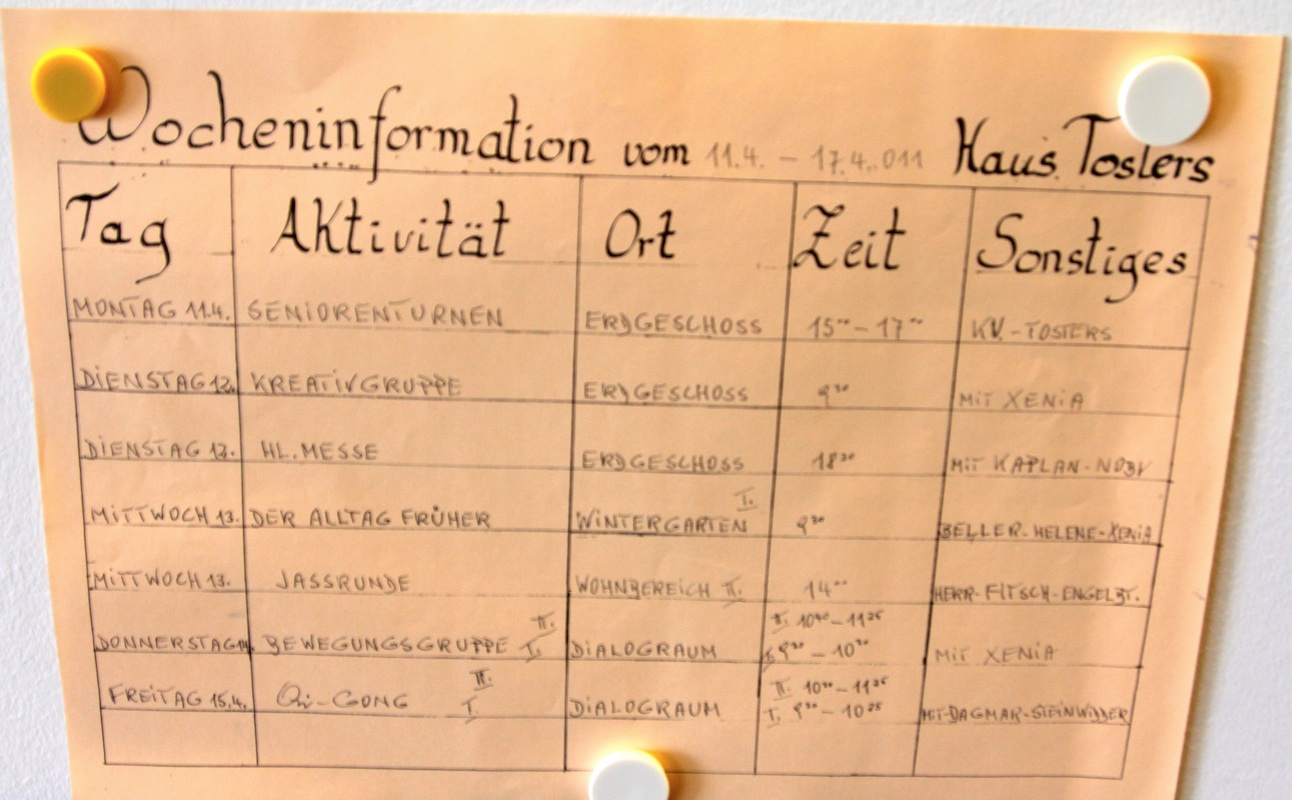 Wocheninformation vom 11.4. – 17.4.011 Haus Tosters
Tag Aktivität Ort Zeit Sonstiges
MONTAG 11.4. SENIORENTURNEN ERDGESCHOSS 15⁰⁰ – 17⁰⁰ KV.-TOSTERS
DIENSTAG 12. KREATIVGRUPPE ERDGESCHOSS 9³⁰ MIT XENIA
DIENSTAG 12. HL. MESSE ERDGESCHOSS 18³⁰ MIT KAPLAN-NOBY
MITTWOCH 13. DER ALLTAG FRÜHER WINTERGARTEN I. 9³⁰ BELLER-HELENE-XENIA
MITTWOCH 13. JASSRUNDE WOHNBEREICH II. 14⁰⁰ HERR-FITSCH-ENGELBT.
II. II. 10⁴⁰ – 11²⁵
DONNERSTAG 14. BEWEGUNGSGRUPPE I. DIALOGRAUM I. 9³⁰ – 10³⁰ MIT XENIA
II. II. 10³⁰ – 11²⁵
FREITAG 15.4. Qi-GONG I. DIALOGRAUM I. 9³⁰ – 10²⁵ MIT-DAGMAR-